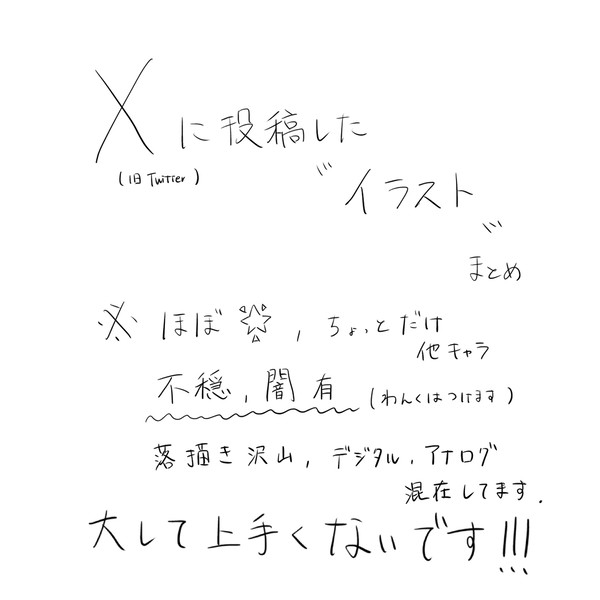 Xに投稿した
(旧Twitter)
"イラスト"
まとめ
※ ほぼ☆, ちょっとだけ
他キャラ
不穏, 闇有 (わんくはつけます)
落描き沢山, デジタル, アナログ
混在してます.
大して上手くないです!!!